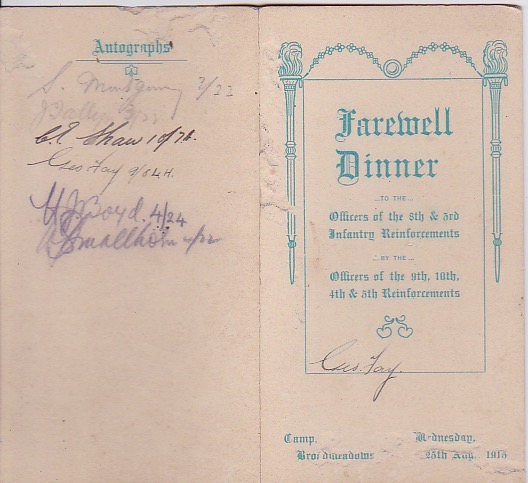 Autographs
S. Montgomery 7/22
C.E. Shaw 10/7th.
Geo. Fay 9/6 L.H.
H J Boyd. 4/24
Smallhorn 4/22
Farewell
Dinner
...TO THE...
Officers of the 8th & 3rd
Infantry Reinforcements
... BY THE ...
Officers of the 9th, 10th,
4th & 5th Reinforcements
Geo. Fay.
Camp, Wednesday,
Broadmeadows 25th Aug. 1915